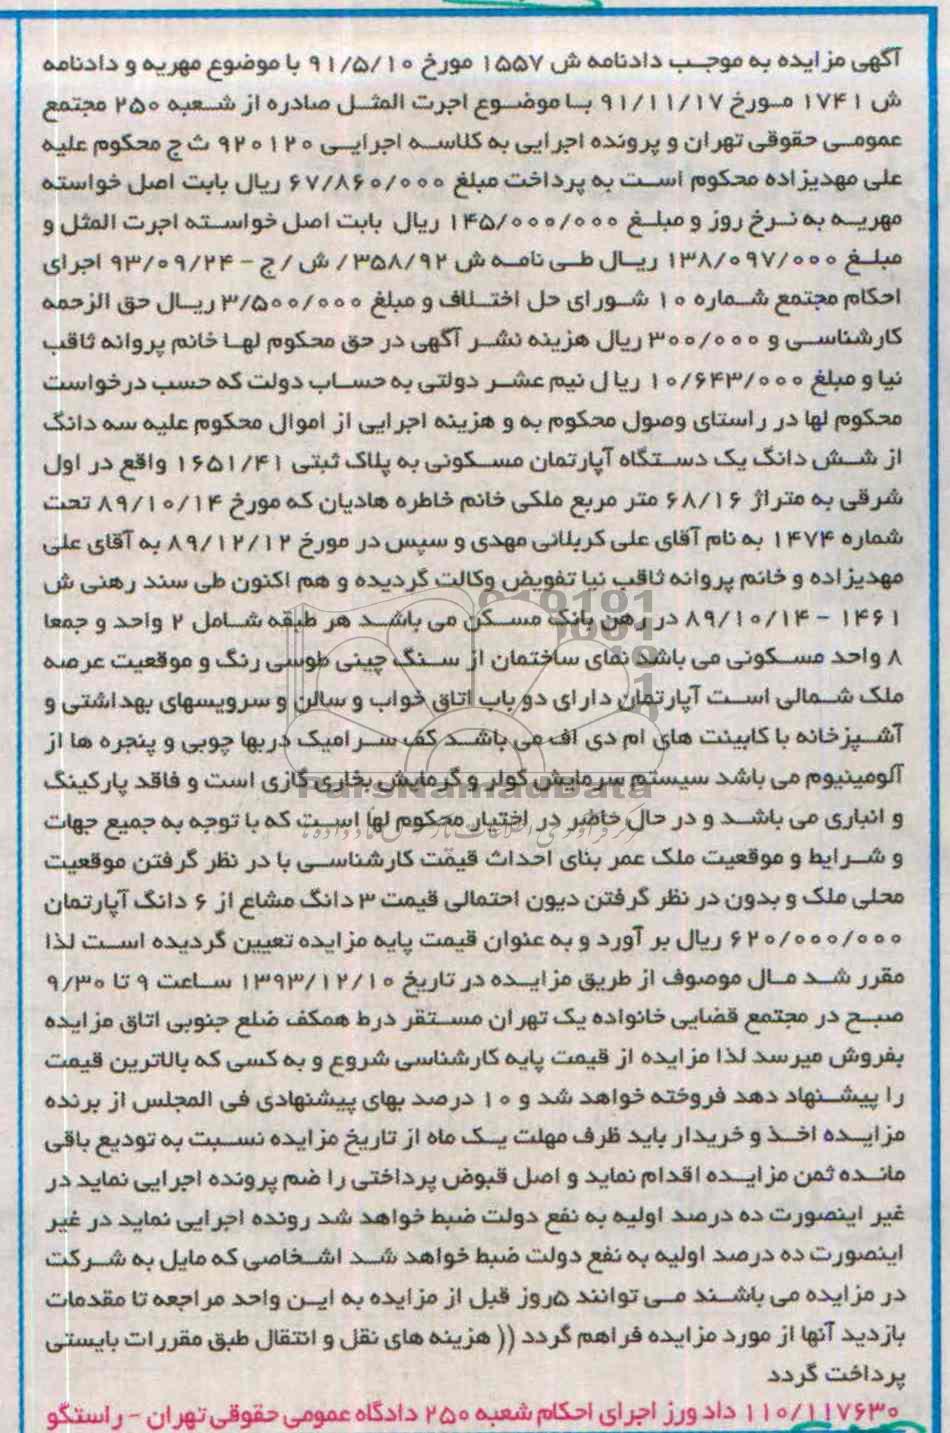 آگهی مزایده به موجب دادنامه ش ۱۵۵۷ مورخ ۹۱/۵/۱۰ با موضوع مهریه و دادنامه
ش ۱۷۴۱ مورخ ۹۱/۱۱/۱۷ با موضوع اجرت المثل صادره از شعبه ۲۵۰ مجتمع
عمومی حقوقی تهران و پرونده اجرایی به کلاسه اجرایی ۹۲۰۱۲۰ ث ج محکوم علیه
علی مهدیزاده محکوم است به پرداخت مبلغ ۶۷/۸۶۰/۰۰۰ ریال بابت اصل خواسته
مهریه به نرخ روز و مبلغ ۱۴۵/۰۰۰/۰۰۰ ریال بابت اصل خواسته اجرت المثل و
مبلغ ۱۳۸/۰۹۷/۰۰۰ ریال طی نامه ش ۳۵۸/۹۲/ ش / ج - ۹۳/۰۹/۲۴ اجرای
احکام مجتمع شماره ۱۰ شورای حل اختلاف و مبلغ ۳/۵۰۰/۰۰۰ ریال حق الزحمه
کارشناسی و ۳۰۰/۰۰۰ ریال هزینه نشر آگهی در حق محکوم لها خانم پروانه ثاقب
نیا و مبلغ ۱۰/۶۴۳/۰۰۰ ریا ل نیم عشر دولتی به حساب دولت که حسب درخواست
محکوم لها در راستای وصول محکوم به و هزینه اجرایی از اموال محکوم علیه سه دانگ
از شش دانگ یک دستگاه آپارتمان مسکونی به پلاک ثبتی ۱۶۵۱/۴۱ واقع در اول
شرقی به متراژ ۶۸/۱۶ متر مربع ملکی خانم خاطره هادیان که مورخ ۸۹/۱۰/۱۴ تحت
شماره ۱۴۷۴ به نام آقای علی کربلائی مهدی و سپس در مورخ ۸۹/۱۲/۱۲ به آقای علی
مهدیزاده و خانم پروانه ثاقب نیا تفویض وکالت گردیده و هم اکنون طی سند رهنی ش
۱۴۶۱ - ۸۹/۱۰/۱۴ در رهن بانک مسکن می باشد هر طبقه شامل ۲ واحد و جمعا
۸ واحد مسکونی می باشد نمای ساختمان از سنگ چینی طوسی رنگ و موقعیت عرصه
ملک شمالی است آپارتمان دارای دو باب اتاق خواب و سالن و سرویسهای بهداشتی و
آشپزخانه با کابینت های ام دی اف می باشد کف سرامیک دربها چوبی و پنجره ها از
آلومینیوم می باشد سیستم سرمایش کولر و گرمایش بخاری گازی است و فاقد پارکینگ
ParsNamadData
و انباری می باشد و در حال حاضر در اختیار محکوم لها است که با توجه به جمیع جهات
و شرایط و موقعیت ملک عمر بنای احداث قیمت کارشناسی با در نظر گرفتن موقعیت
محلی ملک و بدون در نظر گرفتن دیون احتمالی قیمت ۳ دانگ مشاع از ۶ دانگ آپارتمان
۶۲۰/۰۰۰/۰۰۰ ریال بر آورد و به عنوان قیمت پایه مزایده تعیین گردیده است لذا
مقرر شد مال موصوف از طریق مزایده در تاریخ ۱۳۹۳/۱۲/۱۰ ساعت ۹ تا ۹/۳۰
صبح در مجتمع قضایی خانواده یک تهران مستقر درط همکف ضلع جنوبی اتاق مزایده
بفروش میرسد لذا مزایده از قیمت پایه کارشناسی شروع و به کسی که بالاترین قیمت
را پیشنهاد دهد فروخته خواهد شد و ۱۰ درصد بهای پیشنهادی فی المجلس از برنده
مزایده اخذ و خریدار باید ظرف مهلت یک ماه از تاریخ مزایده نسبت به تودیع باقی
مانده ثمن مزایده اقدام نماید و اصل قبوض پرداختی را ضم پرونده اجرایی نماید در
غیر اینصورت ده درصد اولیه به نفع دولت ضبط خواهد شد رونده اجرایی نماید در غیر
اینصورت ده درصد اولیه به نفع دولت ضبط خواهد شد اشخاصی که مایل به شرکت
در مزایده می باشند می توانند ۵روز قبل از مزایده به این واحد مراجعه تا مقدمات
بازدید آنها از مورد مزایده فراهم گردد (( هزینه های نقل و انتقال طبق مقررات بایستی
پرداخت گردد
۱۱۰/۱۱۷۶۳۰ داد ورز اجرای احکام شعبه ۲۵۰ دادگاه عمومی حقوقی تهران - راستگو